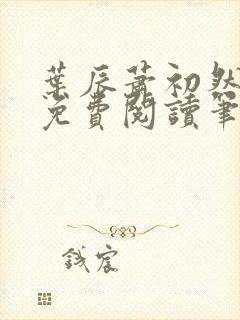 葉辰蕭初然
免費閱讀筆
錢宸